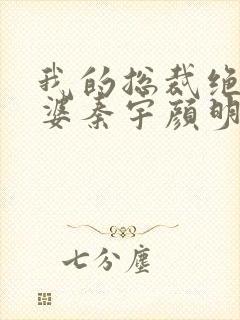 我的总裁绝
婆秦宇颜明
七分尘